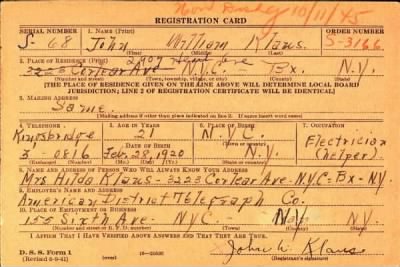 10/11/45
REGISTRATION CARD
SERIAL NUMBER 1. NAME (Print) ORDER NUMBER
S-68 John William Klaus S-3166
(First) (Middle) (Last)
2. PLACE OF RESIDENCE (Print)
3223 Corlear Ave N.Y.C. Bx. N.Y.
(Number and street) (Town, township, village, or city) (County) (State)
[THE PLACE OF RESIDENCE GIVEN ON THE LINE ABOVE WILL DETERMINE LOCAL BOARD
JURISDICTION; LINE 2 OF REGISTRATION CERTIFICATE WILL BE IDENTICAL]
3. MAILING ADDRESS
Same.
[Mailing address if other than place indicated on line 2. If same insert word same]
4. TELEPHONE 5. AGE IN YEARS 6. PLACE OF BIRTH 7. OCCUPATION
Kingsbridge 21 N.Y.C. Electrician
DATE OF BIRTH (helper)
3 0816 Feb. 28 1920 N.Y.
(Exchange) (Number) (Mo.) (Day) (Yr.) (State or country)
8. NAME AND ADDRESS OF PERSON WHO WILL ALWAYS KNOW YOUR ADDRESS
Mrs Hilda Klaus-3223 Corlear Ave-N.Y.C.-Bx-N.Y.
9. EMPLOYER'S NAME AND ADDRESS
American District Telegraph Co.
10. PLACE OF EMPLOYMENT OR BUSINESS
155 Sixth Ave- N.Y.C. N.Y. N.Y.
(Number and street or R. F. D. number) (Town) (County) (State)
I AFFIRM THAT I HAVE VERIFIED ABOVE ANSWERS AND THAT THEY ARE TRUE.
D. S. S. Form 1
(Revised 6-9-41) John W Klaus